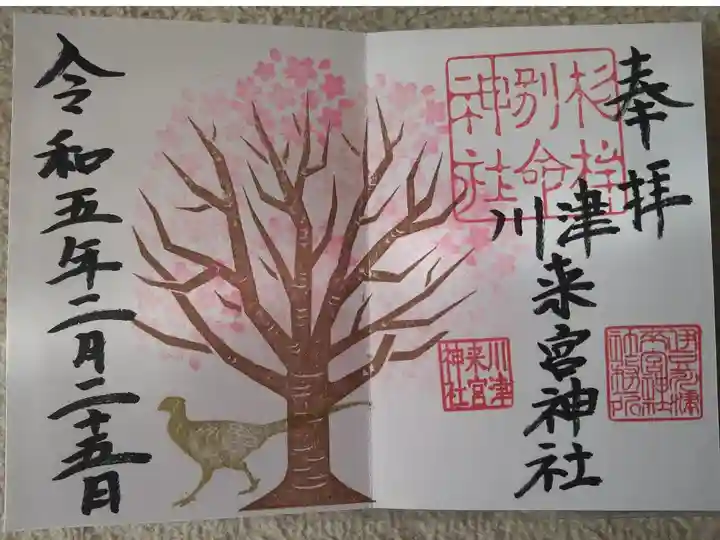 奉拝
杉桙別命神社
川津来宮神社
川津来宮神社
令和五年二月二十五日